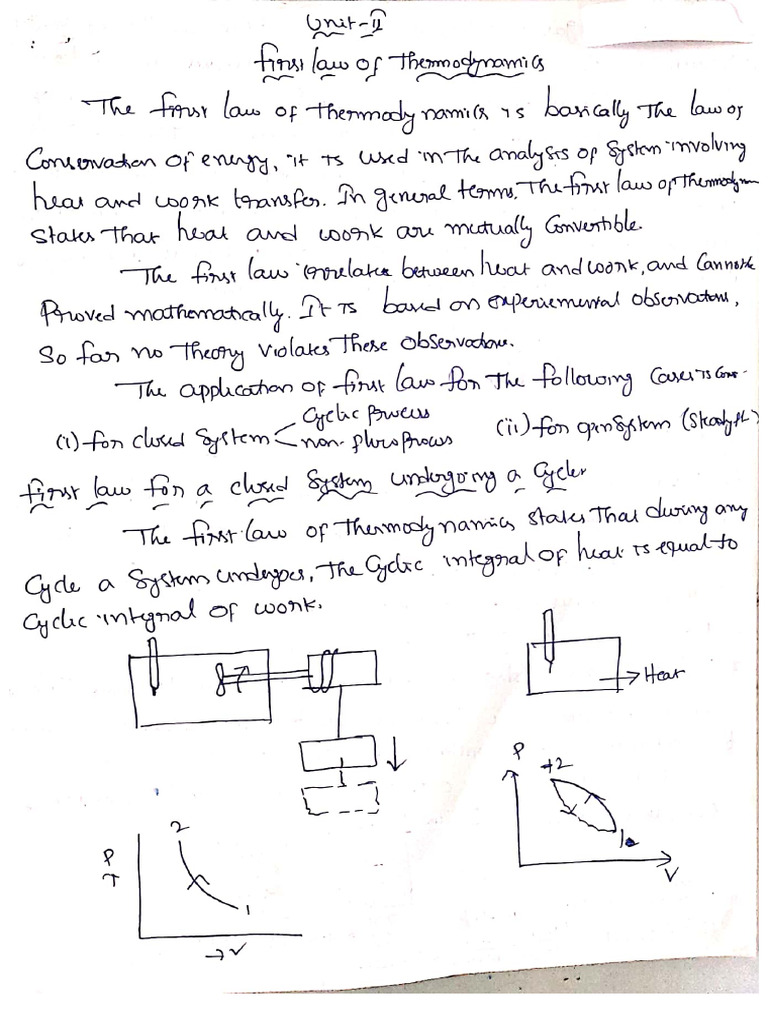 Unit-II
First law of Thermodynamics
The first law of thermodynamics is basically The law of
Conservation of energy, it is used in the analysis of system involving
heat and work transfer. In general terms. The first law of Thermodynam
States that heat and work are mutually Convertible.
The first law correlates between heat and work, and Cannot be
Proved mathematically. It is based on experiemental observations,
So far no Theory violates These observations.
The application of first law for The following Cases is Cons-
(i) for closed system Cyclic process
non-flow process (ii) for open System (Steady fl.)
First law for a closed System undergoing a Cycle:
The first law of Thermodynamics States That during any
Cycle a System undergoes, The Cyclic integral of heat is equal to
Cyclic integral of work.
Heat
P
2
1
V
2
P
T
1
→V